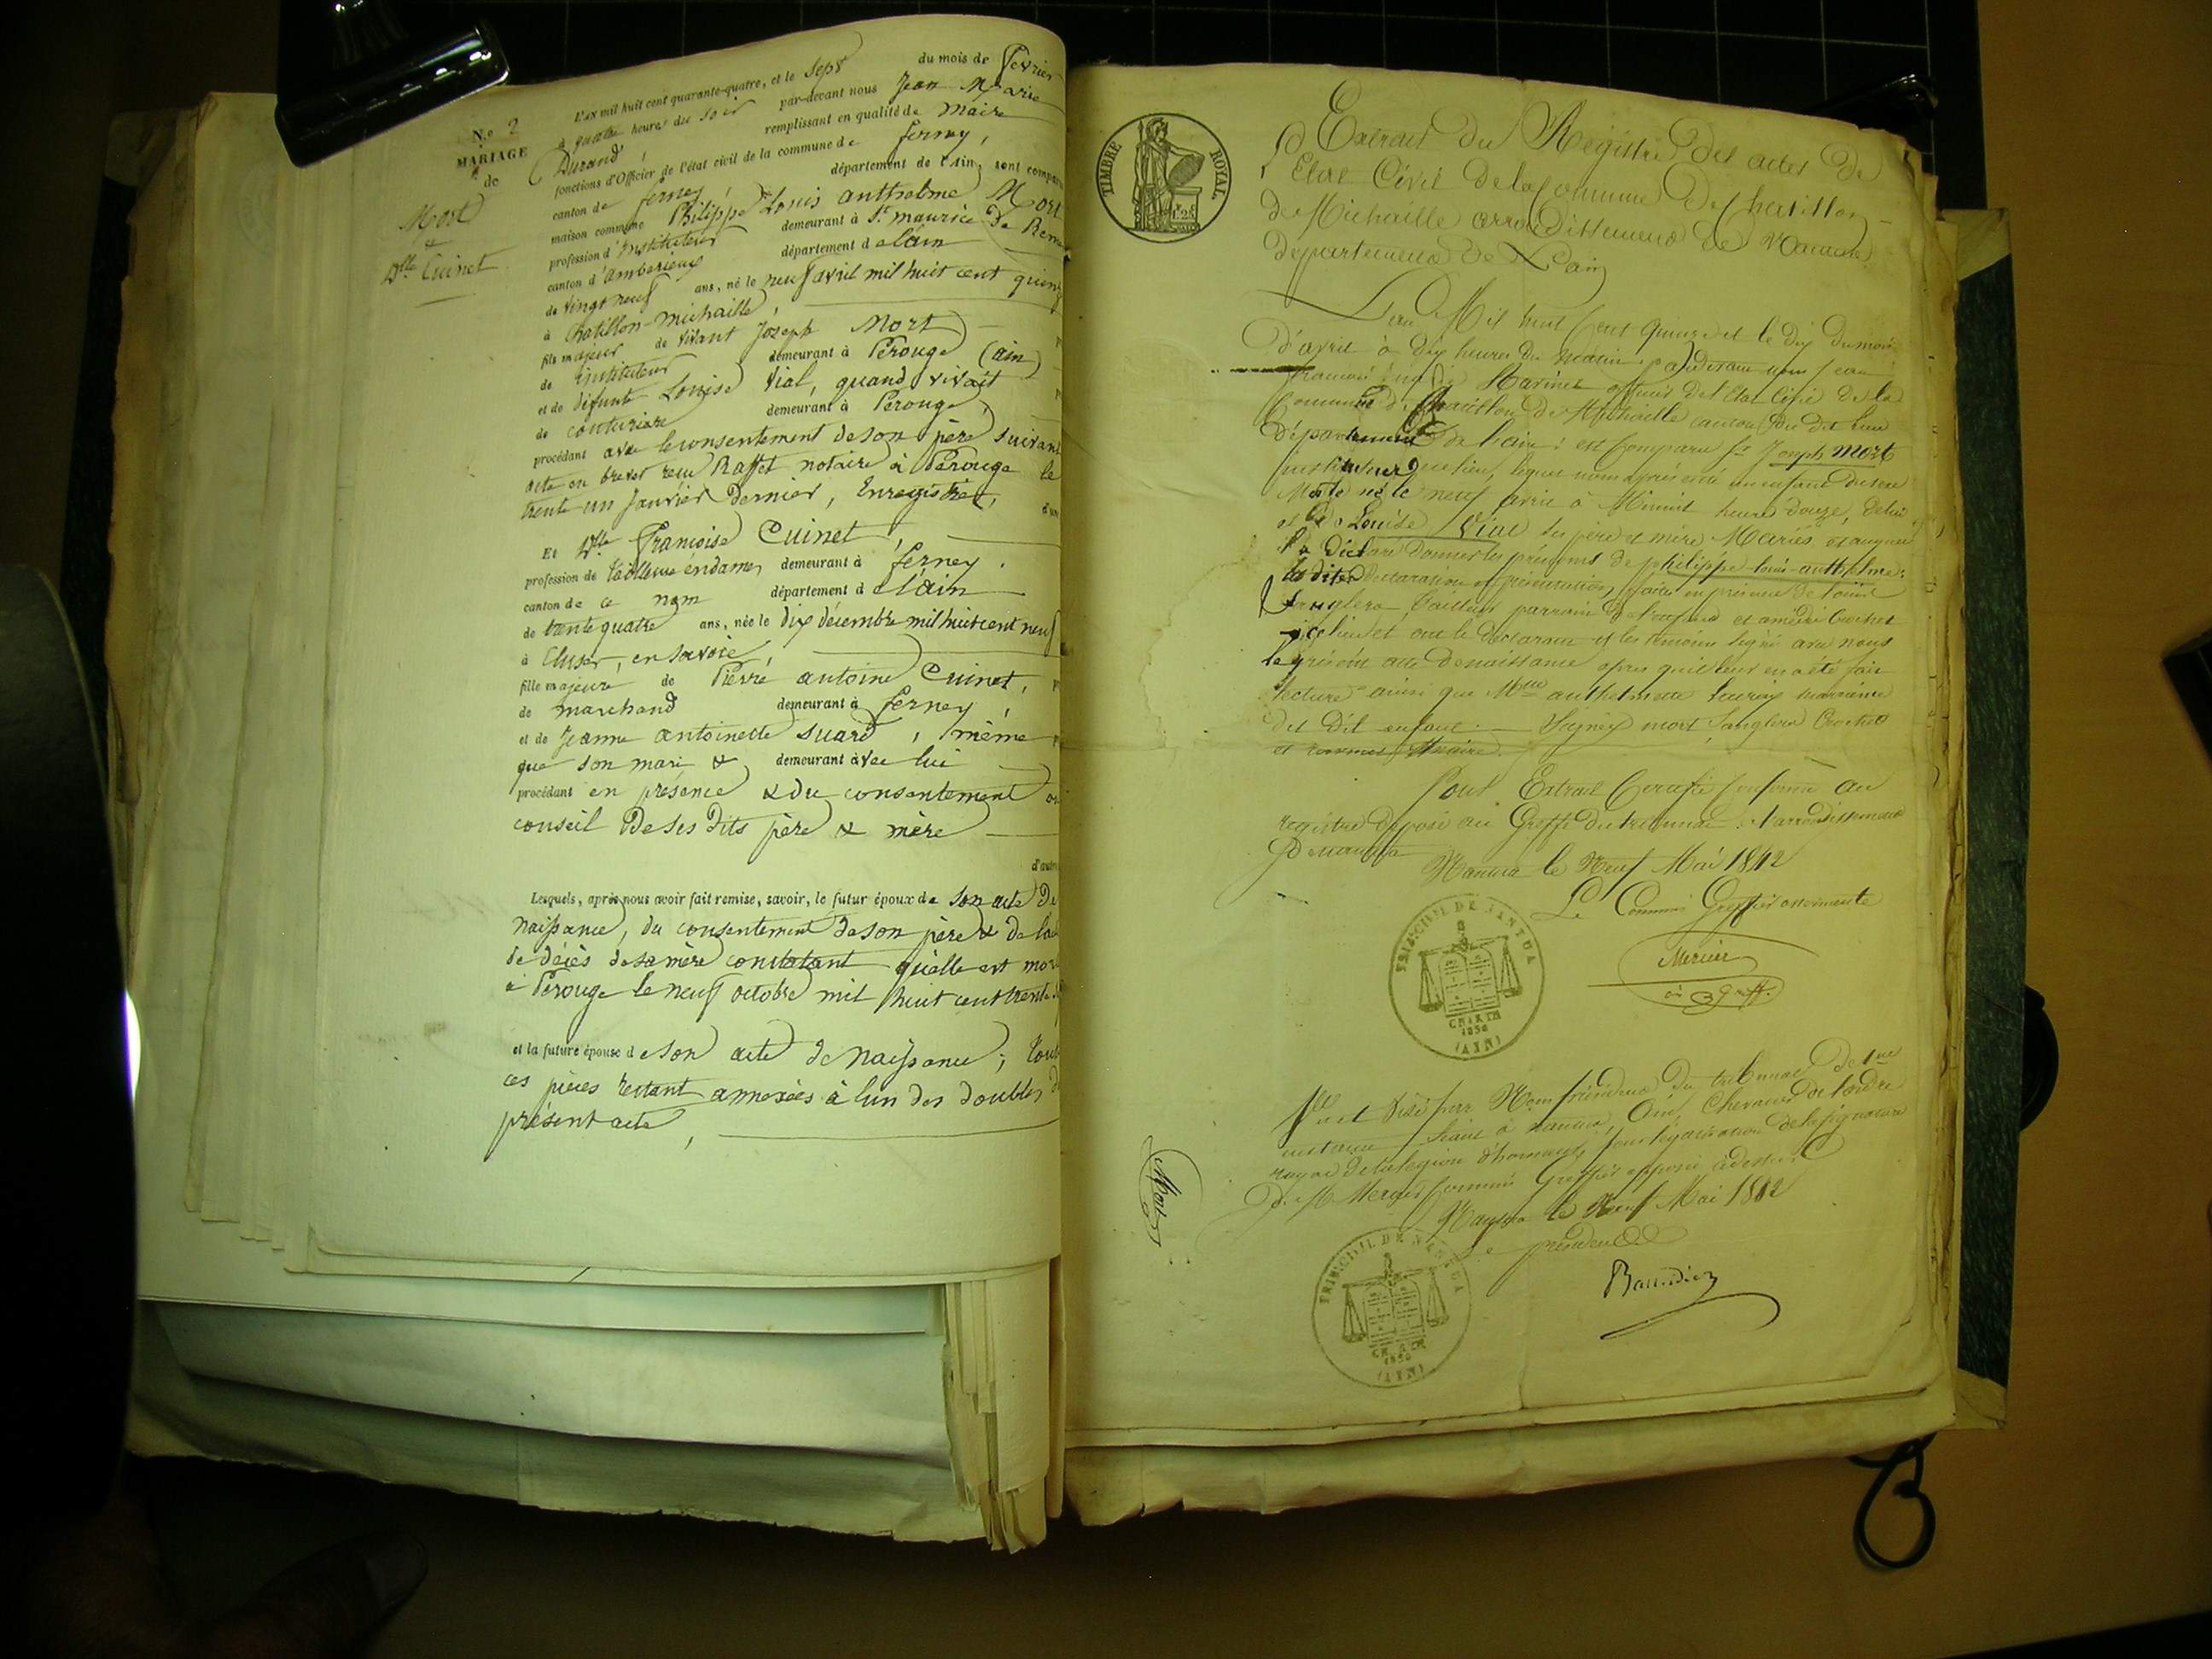 N.o 2
MARIAGE
de
Mort
&
Dlle Cuinet
L'AN mil huit cent quarante-quatre, et le sept du mois de février
à quatre heures du soir par-devant nous Jean Marie
Durand, remplissant en qualité de maire
fonctions d'Officier de l'état civil de la commune de ferney,
canton de ferney, département de l'ain, sont compar
maison commune Philippe Louis anthelme Mort
profession d'instituteur demeurant à St. maurice de Rem
canton d'amberieux département de lain
de vingt neuf ans, né le neuf avril mil huit cent quinz
à Chatillon-michaille,
fils majeur de vivant Joseph Mort
de instituteur demeurant à Pérouge (ain)
et de défunte Louise Vial, quand vivait
de couturière demeurant à Perouge,
procédant avec le consentement de son père suivant
acte en brevet reçu Raffet notaire à Pérouge le
trente un Janvier dernier, Enregistré,
Et Dlle Françoise Cuinet,
profession de tailleuse en dames demeurant à ferney.
canton de ce nom département de l'ain
de trente quatre ans, née le dix décembre mil huit cent neuf
à Cluses, en savoie,
fille majeure de Pierre antoine Cuinet,
de marchand demeurant à ferney,
et de Jeanne antoinette Suard, même
que son mari & demeurant avec lui
procédant en présence & du consentement
conseil de ses dits père & mère
d'autre
Lesquels, après nous avoir fait remise, savoir, le futur époux de son acte de
naissance, du consentement de son père & de la
de décès de sa mère constatant qu'elle est mor
à Pérouge le neuf octobre mil huit cent trente
et la future épouse de son acte de naissance; tout
ces pièces restant annexées à l'un des doubles d
présent acte,
TIMBRE ROYAL
1.25
Extrait du Registre des actes de
l'Etat Civil de la Commune de Chatillon
de Michaille arrondissement de Nantua
département de L'ain
L'an Mil huit Cent quinze et le dix du mois
d'avril à dix heures du matin pardevant nous Jean
Marinet officier de l'état civil de la
Commune de Chatillon de Michaille canton du dit lieu
département de l'ain: est Comparu Sr Joseph Mort
instituteur lequel nous a présenté un enfant du sexe
Male né le neuf avril à Minuit heure douze, de lui
et de Louise Vial ses père et mère Mariés et auquel
il a déclaré donner les prénoms de philippe-louis-anthelme:
les dites déclaration et présentation faites en présence de
Sanglera Tailleur parrain de l'enfant et Crochet
le déclarant et les témoins signé avec nous
le présent acte de naissance après qu'il leur en a été fait
lecture ainsi que Mlle anthelmette marraine
du dit enfant. Signés mort, Sanglera Crochet
et Maire.
Pour Extrait Certifié Conforme au
registre déposé au Greffe du tribunal de l'arrondissement
de Nantua
Nantua le Neuf Mai 1842
Le Commis Greffier assermenté
Mercier
cis Greff.
TRIB. CIVIL DE NANTUA
CHARTE
1830
(AIN)
Vu et visé par Nous président du tribunal de 1ere
instance séant à Nantua, Ain, Chevalier de l'ordre
royal de la légion d'honneur, pour légalisation de la signature
de M. Mercier Commis Greffier apposée ci-dessus
Nantua le Neuf Mai 1842
Le président
Mort
TRIB. CIVIL DE NANTUA
CHARTE
1830
(AIN)